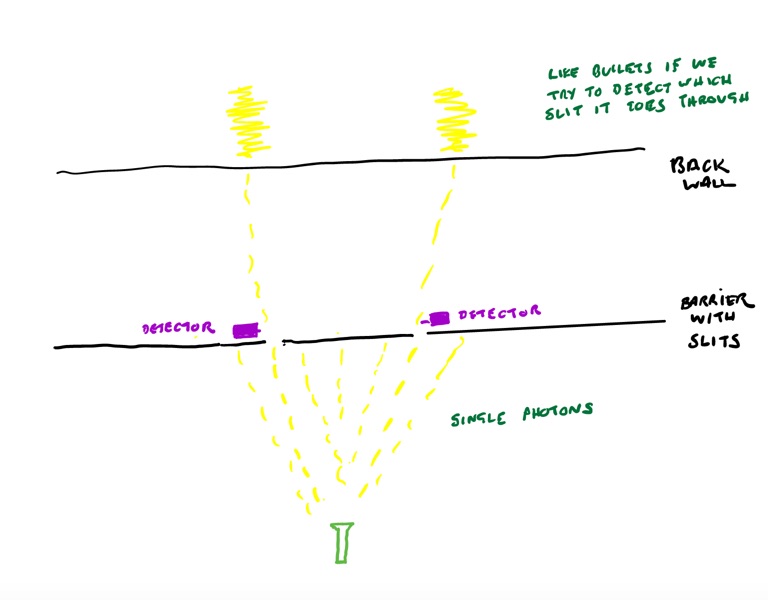 LIKE BULLETS IF WE
TRY TO DETECT WHICH
SLIT IT GOES THROUGH
BACK
WALL
DETECTOR
DETECTOR
BARRIER
WITH
SLITS
SINGLE PHOTONS